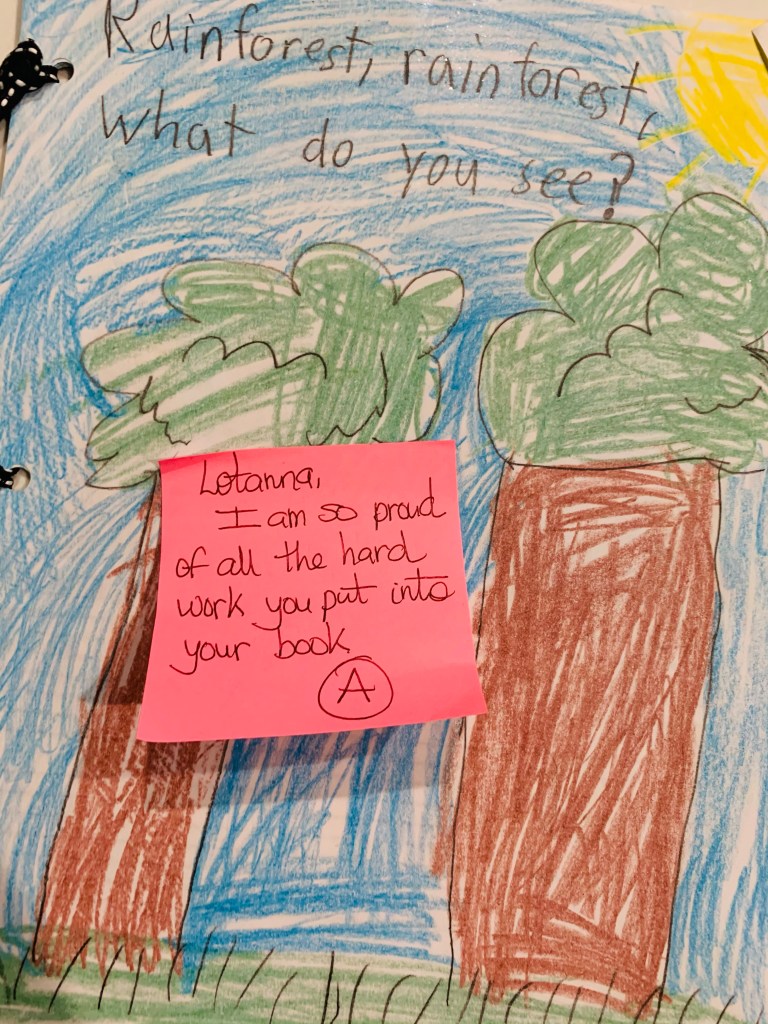 Rainforest, rainforest,
What do you see?
Lotanna,
I am so proud
of all the hard
work you put into
your book
A